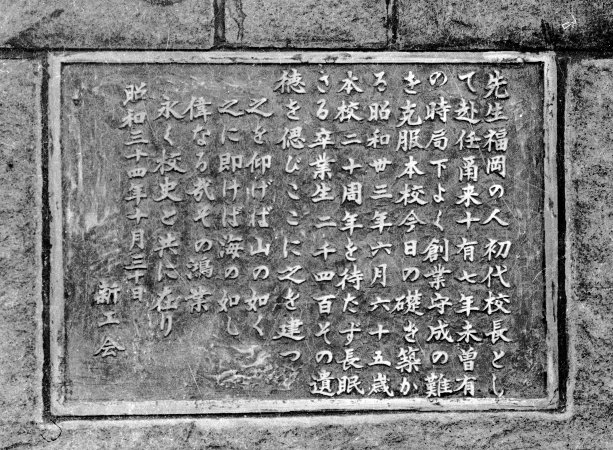 先生福岡の人初代校長とし
て赴任爾来十有七年未曽有
の時局下よく創業守成の難
を克服本校今日の礎を築か
る昭和卅三年六月六十五歳
本校二十周年を待たず長眠
さる卒業生二千四百その遺
徳を偲びここに之を建つ
之を仰げば山の如く
之に即けば海の如し
偉なる哉その鴻業
永く校史と共に在り
昭和三十四年十月三十日
新工会